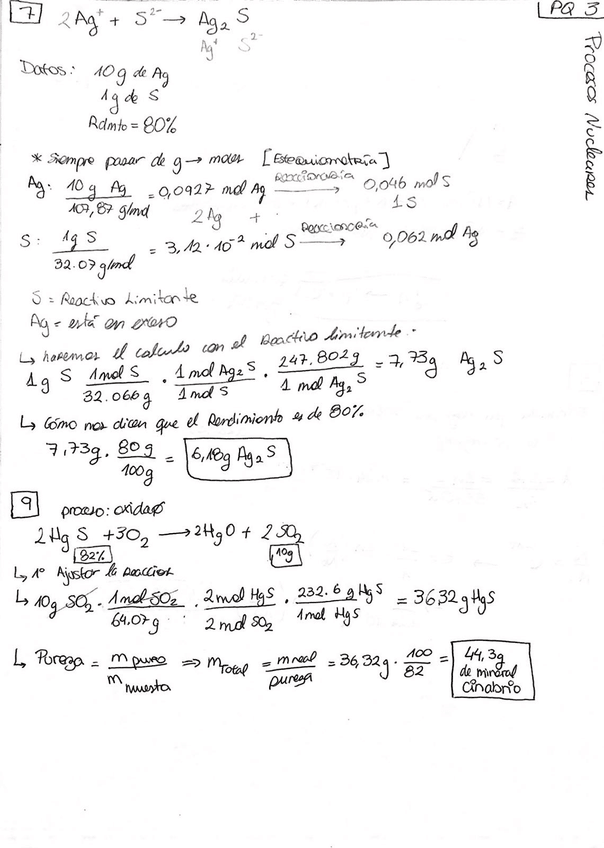 PQ 3
Procesos Nucleares
7 2Ag⁺ + S²⁻ → Ag₂ S
Ag⁺ S²⁻
Datos: 10g de Ag
1g de S
Rdmto = 80%
* Siempre pasar de g → moles [Estequiometría]
Ag: 10 g Ag / 107,87 g/mol = 0,0927 mol Ag Reaccionaría → 0,046 mol S
2Ag + 1S
S: 1g S / 32.07 g/mol = 3,12·10⁻² mol S Reaccionaría → 0,062 mol Ag
S = Reactivo Limitante
Ag = está en exceso
↳ haremos el calculo con el Reactivo limitante.
1g S 1mol S / 32.066 g · 1 mol Ag₂S / 1 mol S · 247.802g / 1 mol Ag₂S = 7,73g Ag₂S
↳ Cómo nos dicen que el Rendimiento es de 80%
7,73g · 80 g / 100g = 6,18g Ag₂S
9 proceso: oxidaº
2HgS + 3O₂ → 2HgO + 2SO₂
82% 10g
↳ 1º Ajustar la reacción
↳ 10g SO₂ · 1mol SO₂ / 64.07g · 2mol HgS / 2 mol SO₂ · 232.6 g HgS / 1mol HgS = 36,32 g HgS
↳ Pureza = m puro / m muestra ⇒ m Total = m real / pureza = 36,32g · 100 / 82 = 44,3g de mineral Cinabrio